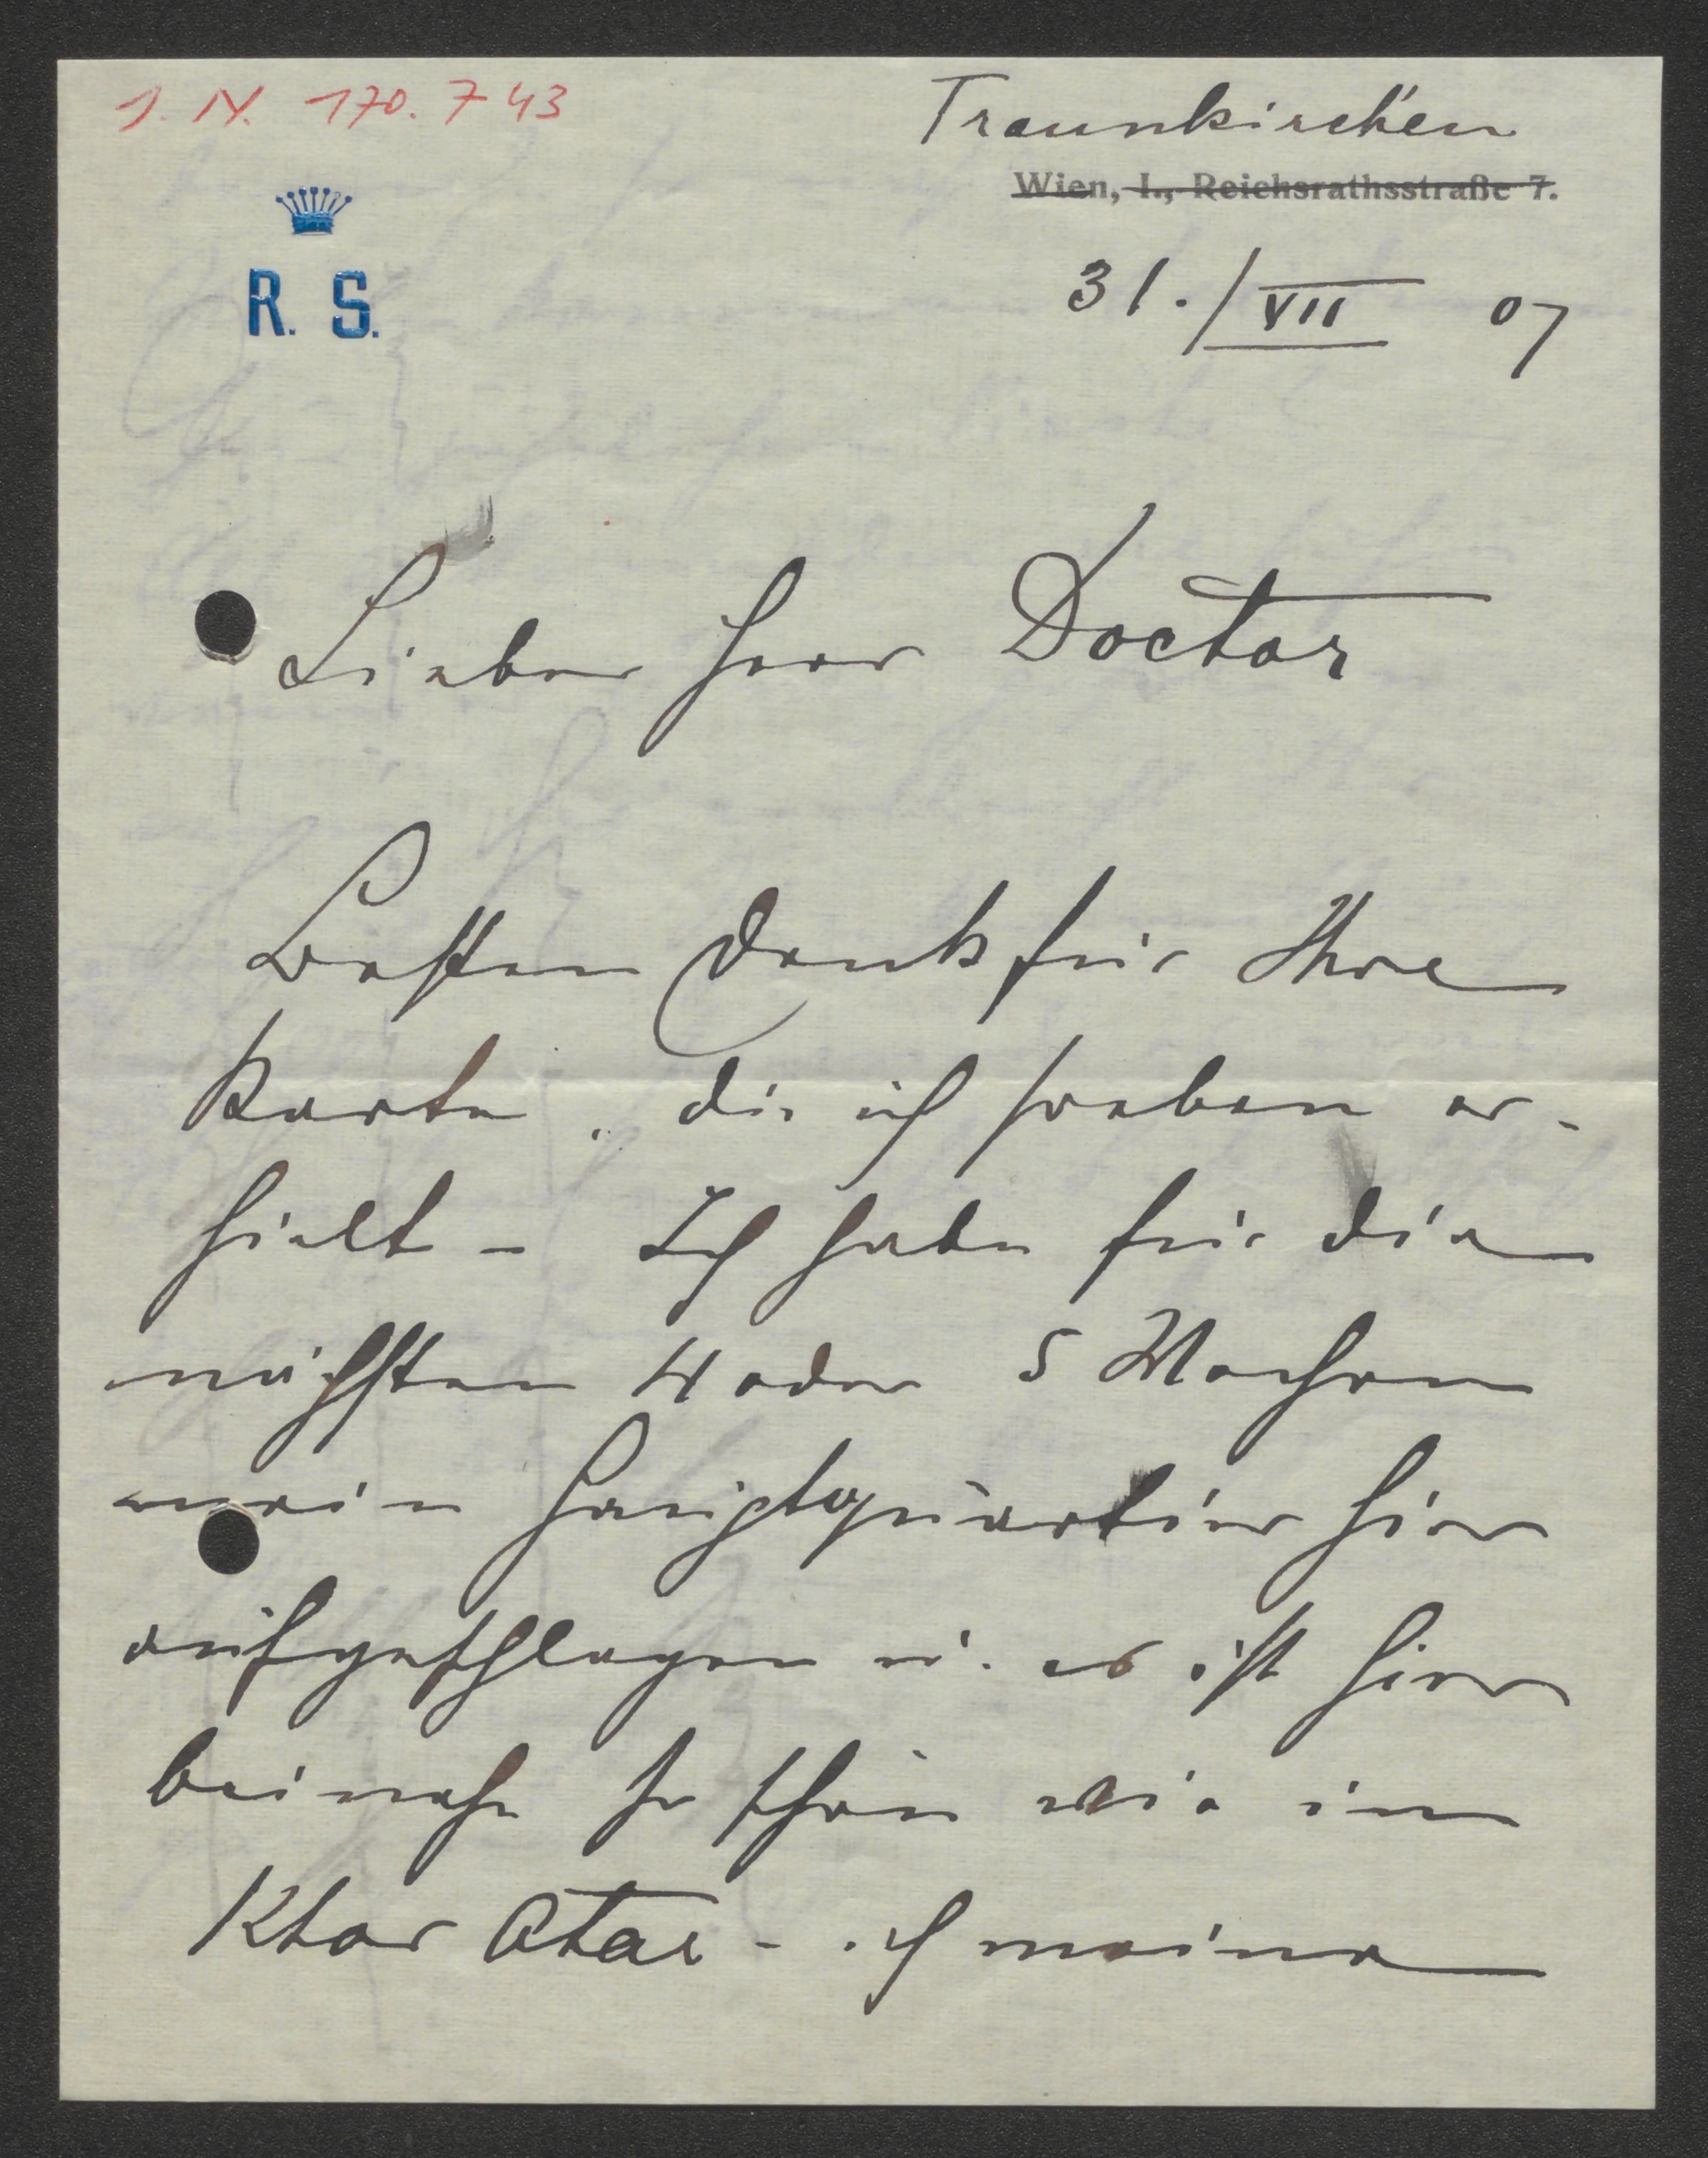 I. N. 170.743
Traunkirchen
Wien, I., Reichsrathsstraße 7.
R. S.
31./VII 07
Lieber Herr Doctor
Besten Dank für Ihre
Karte, die ich soeben er-
hielt - Ich habe für die
nächsten 4 oder 5 Wochen
mein Hauptquartier hier
aufgeschlagen u. es ist hier
beinahe so schön wie im
- ich meine